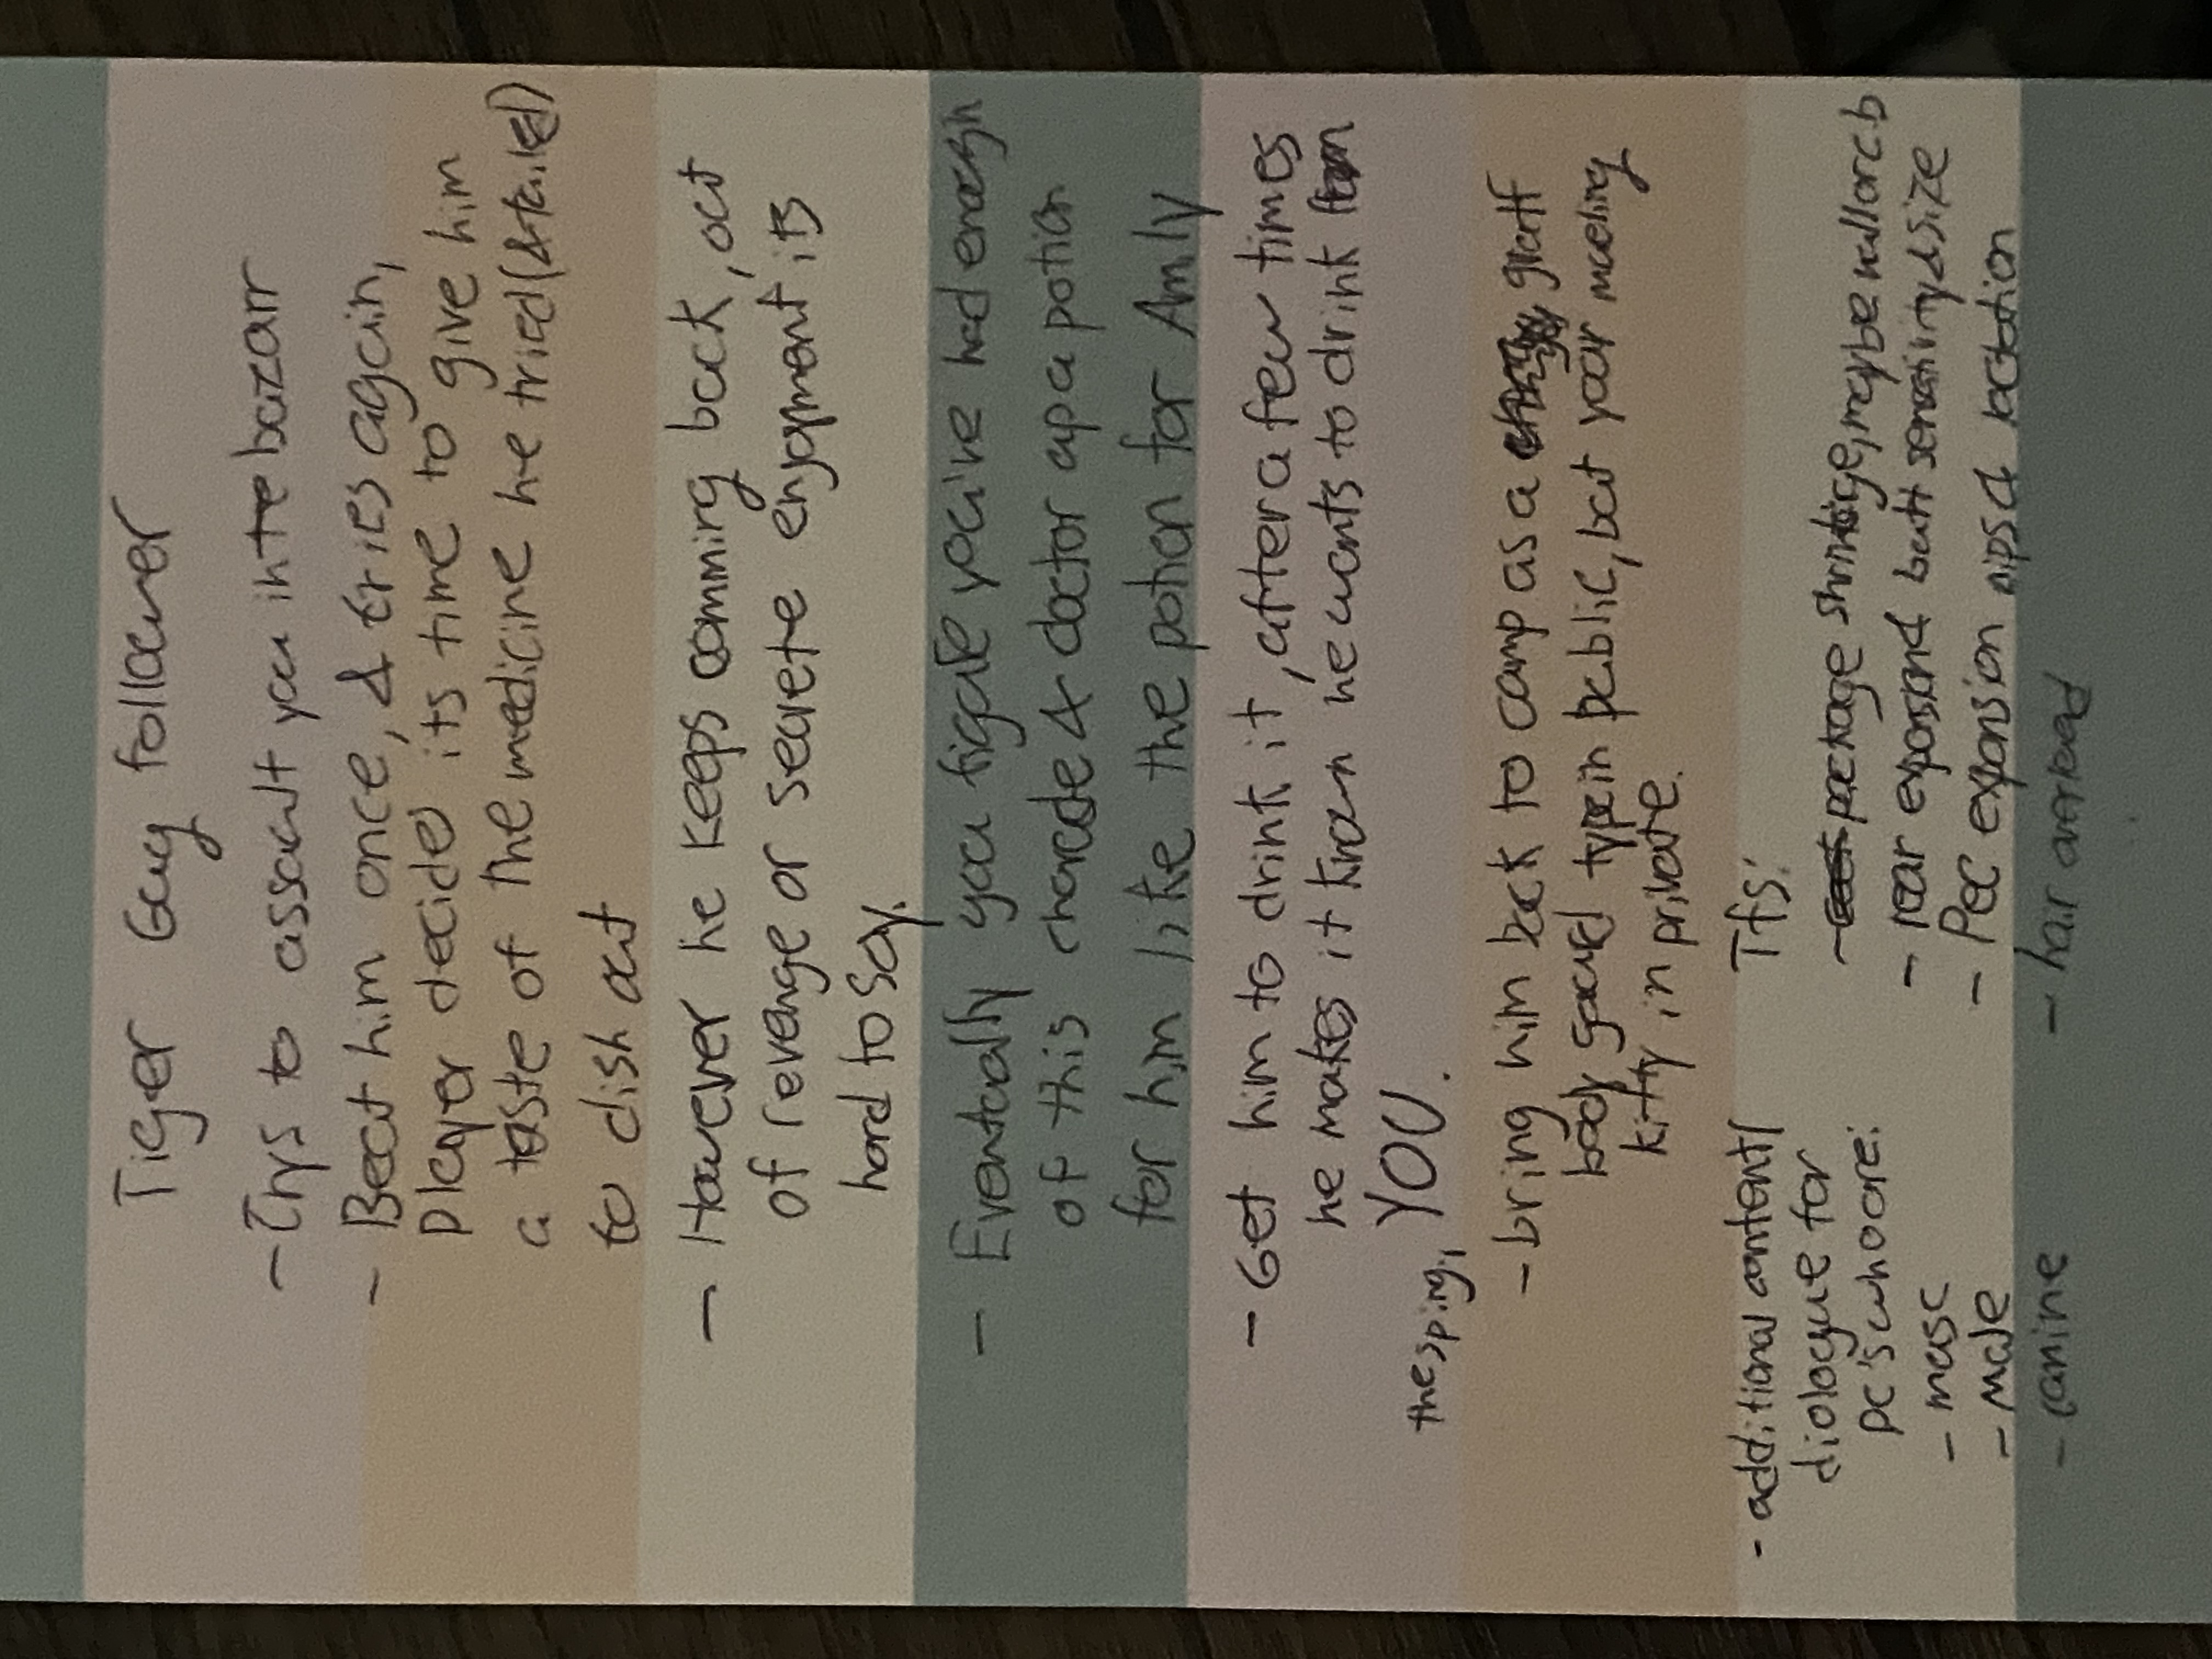 Tiger Guy follower
- Trys to assault you in te bazarr
- Beat him once, & tries again,
player decided its time to give him
a taste of the medicine he tried (& failed)
to dish out
- However he keeps comming back, out
of revenge or secrete enjoyment its
hard to say.
- Eventually you figure you've had enough
of this charade & doctor up a potion
for him like the potion for Amily
- Get him to drink it, after a few times
he makes it known he wants to drink from
the spring, YOU.
- bring him back to camp as a gruff
body gaurd type in public, but your mewling
kitty in private.
- additional content/
diologue for
pc's who are:
- masc
- male
- canine
Tfs:
- package shrinkige, maybe null orc b
- rear expansion & butt sensitivity & size
- Pec expansion nips & lactation
- hair overload